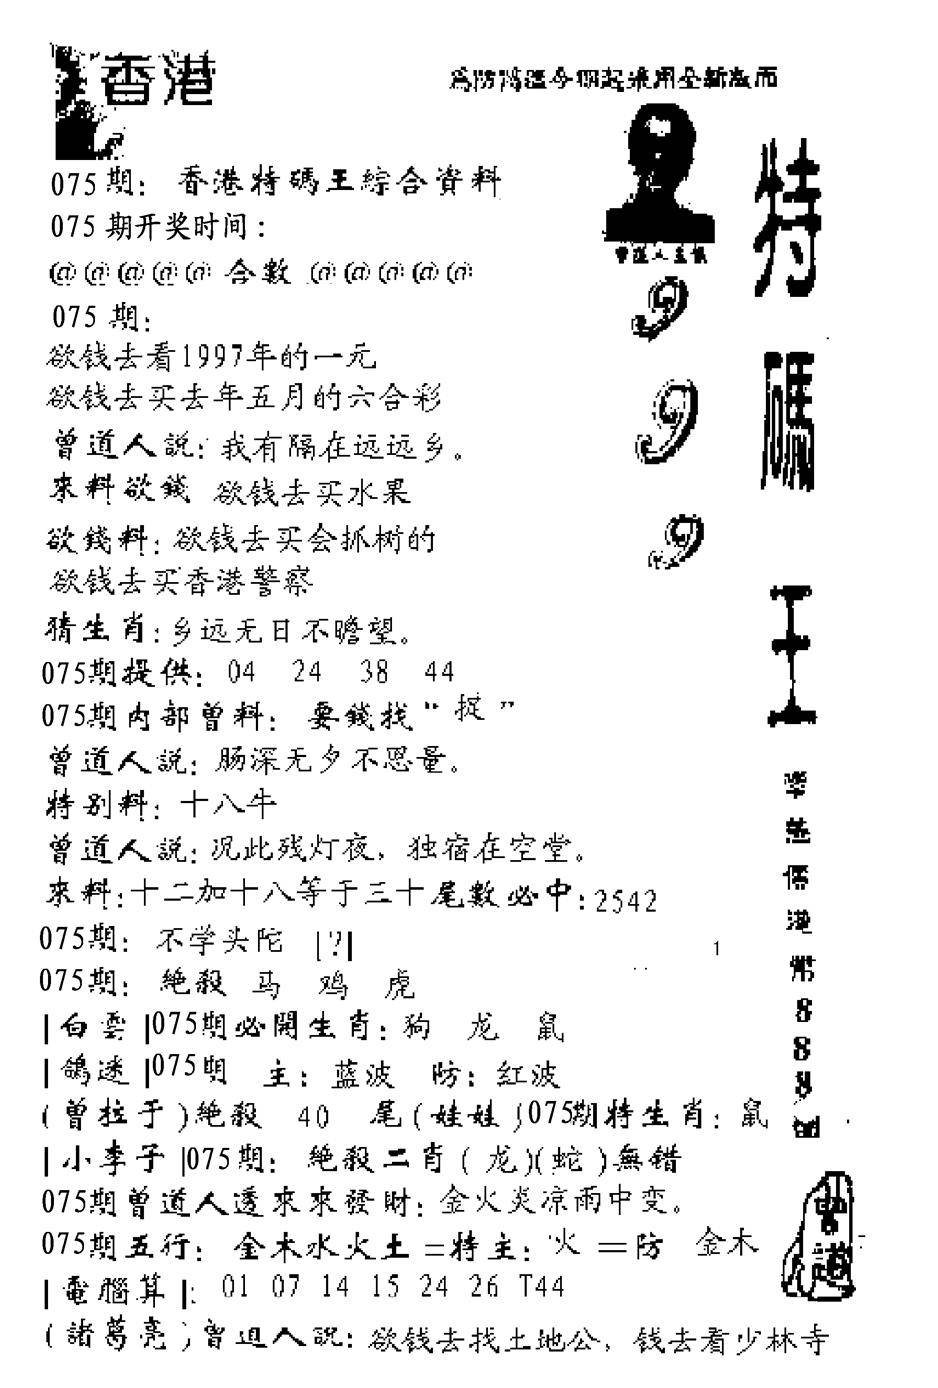 香港
075期：香港特碼王綜合資料
075期开奖时间：
@@@@@合數@@@@@
075期：
欲钱去看1997年的一元
欲钱去买去年五月的六合彩
曾道人説：我有隔在远远乡。
來料欲錢 欲钱去买水果
欲錢料：欲钱去买会抓树的
欲钱去买香港警察
猜生肖：乡远无日不瞻望。
075期提供：04 24 38 44
075期内部曾料：要錢找“捉”
曾道人説：肠深无夕不思量。
特别料：十八牛
曾道人説：况此残灯夜，独宿在空堂。
來料：十二加十八等于三十尾數必中：2542
075期：不学头陀 [?]
075期：絶殺 马 鸡 虎
|白雲|075期必開生肖：狗 龙 鼠
|鴿迷|075期 主：蓝波 防：红波
(曾拉于)絶殺 40 尾(娃娃)075期特生肖：鼠
|小李子|075期：絶殺二肖(龙)(蛇)無错
075期曾道人透來來發財：金火炎凉雨中变。
075期五行：金木水火土=特主：火=防 金木
|電腦算|：01 07 14 15 24 26 T44
(諸葛亮)曾道人説：欲钱去找土地公，钱去看少林寺
曾道人主供
999
特碼王
港幣888
曾道